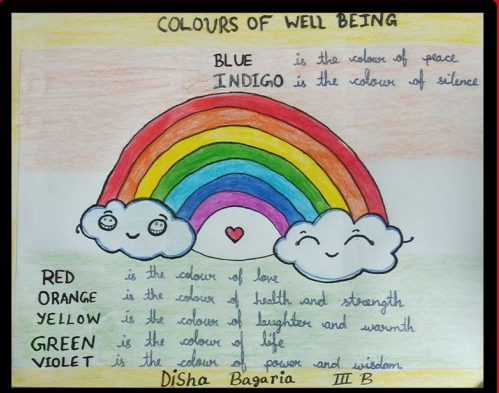 COLOURS OF WELL BEING
BLUE is the colour of peace
INDIGO is the colour of silence
RED is the colour of love
ORANGE is the colour of health and strength
YELLOW is the colour of laughter and warmth
GREEN is the colour of life
VIOLET is the colour of power and wisdom
DiSha Bagaria III B